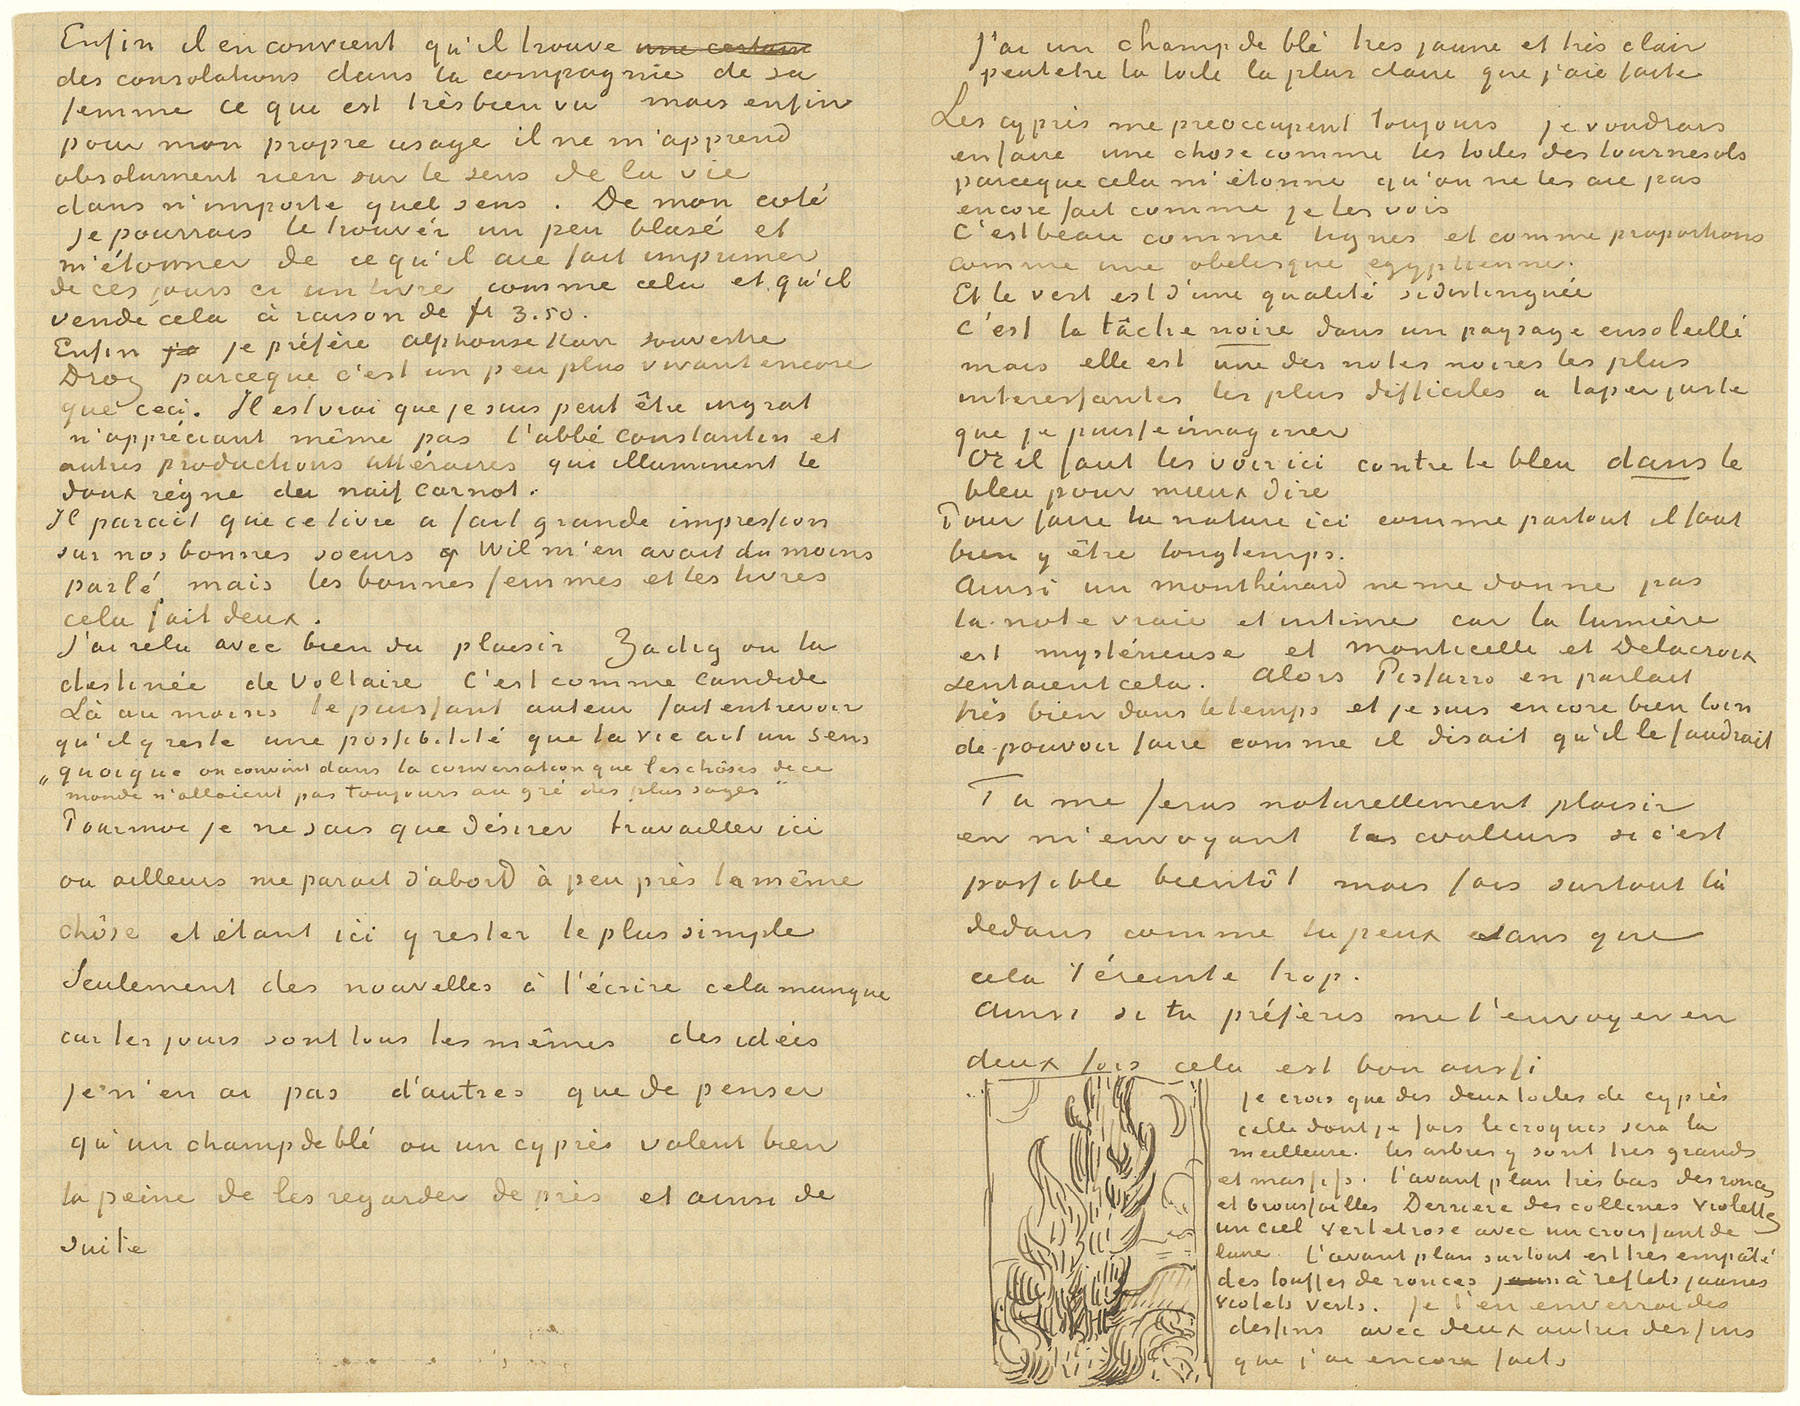 Enfin il en convient qu'il trouve une certain
des consolations dans la compagnie de sa
femme ce que est très bien vu mais enfin
pour mon propre usage il ne m'apprend
absolument rien sur le sens de la vie
dans n'importe quel sens. De mon coté
je pourrais le trouver un peu blasé et
m'étonner de ce qu'il aie fait imprimer
de ces jours ci un livre comme cela et qu'il
vende cela à raison de fr 3.50.
Enfin je je préfère alphonse Karr Souvestre
Droz parceque c'est un peu plus vivant encore
que ceci. Il est vrai que je suis peut être ingrat
n'appréciant même pas l'abbé Constantin et
autres productions littéraires qui illuminent le
doux règne du naif Carnot.
Il parait que ce livre a fait grande impression
sur nos bonnes soeurs Wil m'en avait du moins
parlé mais les bonnes femmes et les livres
cela fait deux.
J'ai relu avec bien du plaisir Zadig ou la
destinée de Voltaire C'est comme Candide
Là au moins le puissant auteur fait entrevoir
qu'il y reste une possibilité que la vie ait un sens
" quoique on convint dans la conversation que les chôses de ce
monde n'alloient pas toujours au gré des plus sages "
Pour moi je ne sais que désirer travailler ici
ou ailleurs me parait d'abord à peu près la même
chôse et étant ici y rester le plus simple
Seulement des nouvelles à t'écrire cela manque
car les jours sont tous les mêmes des idées
je n'en ai pas d'autres que de penser
qu'un champ de blé ou un cyprès valent bien
la peine de les regarder de près et ainsi de
suite
J'ai un champ de blé très jaune et très clair
peutetre la toile la plus claire que j'aie faite
Les cyprès me preoccupent toujours je voudrais
en faire une chose comme les toiles des tournesols
parceque cela m'étonne qu'on ne les aie pas
encore fait comme je les vois
C'est beau comme lignes et comme proportions
comme une obelisque egyptienne.
Et le vert est d'une qualité si distinguée
c'est la tâche noire dans un paysage ensoleillé
mais elle est une des notes noires les plus
interessantes les plus difficiles a taper juste
que je puisse imaginer
Or il faut les voir ici contre le bleu dans le
bleu pour mieux dire
Pour faire la nature ici comme partout il faut
bien y être longtemps.
Ainsi un monthénard ne me donne pas
la note vraie et intime car la lumière
est mystérieuse et Monticelli et Delacroix
sentaient cela. Alors Pissarro en parlait
très bien dans le temps et je suis encore bien loin
de pouvoir faire comme il disait qu'il le faudrait
Tu me feras naturellement plaisir
en m'envoyant les couleurs si c'est
possible bientôt mais fais surtout là
dedans comme tu peux sans que
cela t'éreinte trop.
Ainsi si tu préfères me l'envoyer en
deux fois cela est bon aussi
je crois que des deux toiles de cyprès
celle dont je fais le croquis sera la
meilleure. les arbres y sont très grands
et massifs. l'avant plan très bas des ronces
et broussailles Derriere des collines violettes
un ciel vert et rose avec un croissant de
lune. l'avant plan surtout est très empâté
des touffes de ronces jaun à reflets jaunes
violets verts. Je t'en enverrai des
dessins avec deux autres dessins
que j'ai encore faits